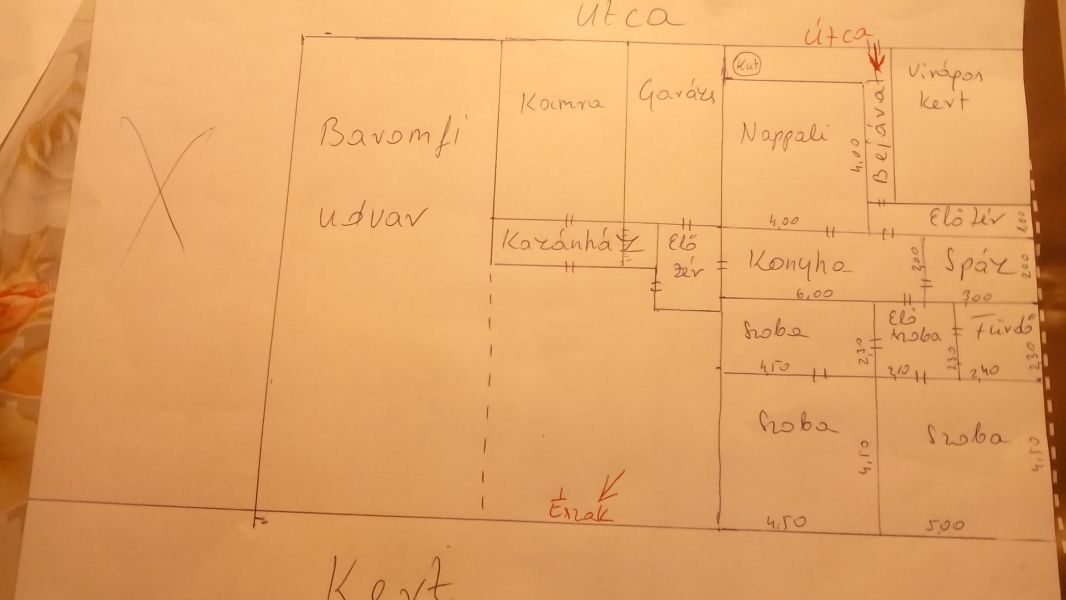 utca
Útca
Kút
Virágos
kert
Kamra
Garázs
Baromfi
udvar
Nappali
4,00
Bejárat
4,00
Előtér
1,00
Kazánház
Elő
tér
Konyha
6,00
2,00
Spáz
2,00
3,00
Szoba
4,50
2,30
Elő
szoba
2,10
2,30
Fürdő
2,40
2,30
Szoba
4,50
4,50
Szoba
5,00
4,50
Észak
Kert